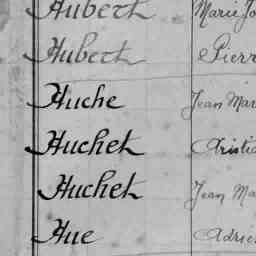 Hubert Marie Jo
Hubert Pierr
Huche Jean Mar
Huchet Aristid
Huchet Jean Ma
Hue Adrie